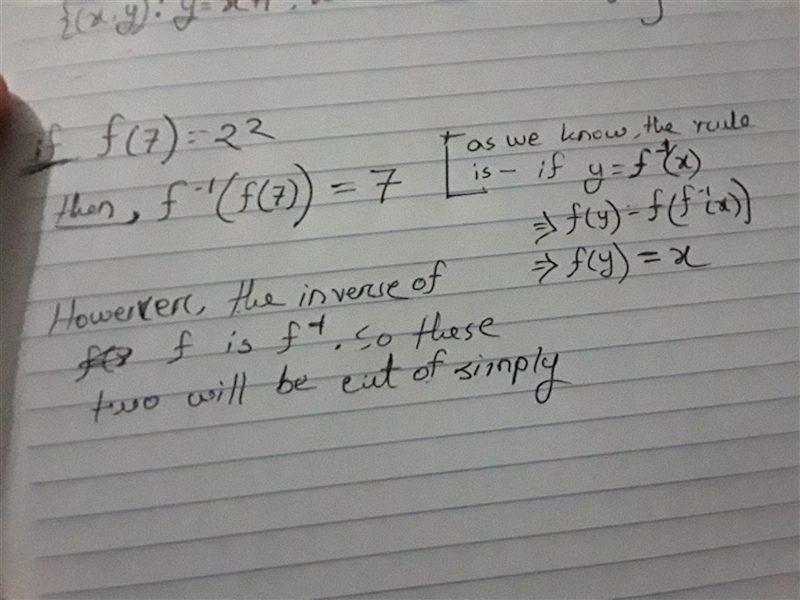 {(x,y): y=x
if f(7)=22
then, f⁻¹(f(7)) = 7
[as we know, the rule
is - if y=f⁻¹(x)
⇒ f(y)=f(f⁻¹(x)]
⇒ f(y) = x
However, the inverse of
f is f⁻¹. so these
two will be cut of simply